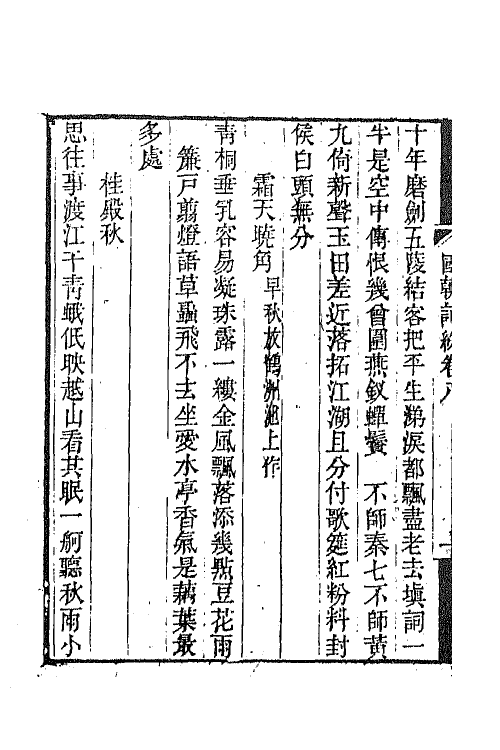 國朝詞綜卷八
十年磨劍五陵結客把平生涕淚都飄盡老去塡詞一
半是空中傳恨幾曾圍燕釵蟬鬢　不師秦七不師黃
九倚新聲玉田差近落拓江湖且分付歌筵紅粉料封
侯白頭無分
霜天曉角早秋放鶴洲池上作
青桐垂乳容易凝珠露一縷金風飄落添幾點豆花雨
簾戸翦燈語草蟲飛不去坐愛水亭香氣是藕葉最
多處
桂殿秋
思往事渡江干青蛾低映越山看共眠一舸聽秋雨小